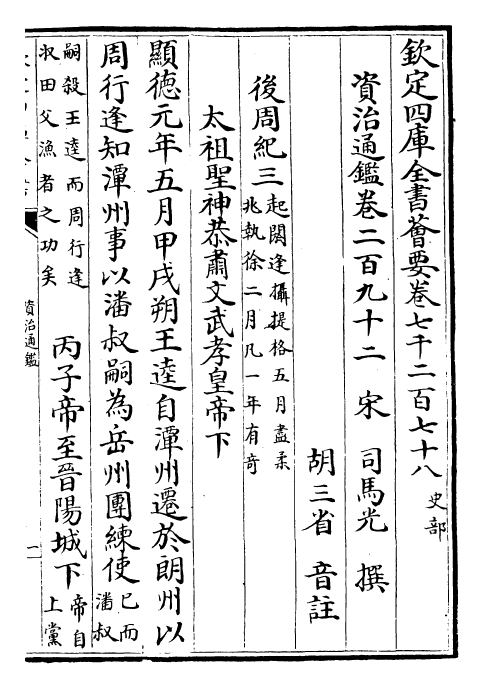 欽定四庫全書薈要卷七千二百七十八 史部
資治通鑑卷二百九十二 宋 司馬光 撰
胡三省 音註
後周紀三 起閼逢攝提格五月盡柔兆執徐二月凡一年有奇
太祖聖神恭肅文武孝皇帝下
顯德元年五月甲戌朔王逵自潭州遷於朗州以
周行逢知潭州事以潘叔嗣為岳州團練使 已而潘叔
嗣殺王逵而周行逢收田父漁者之功矣 丙子帝至晉陽城下 帝自上黨
資治通鑑
一